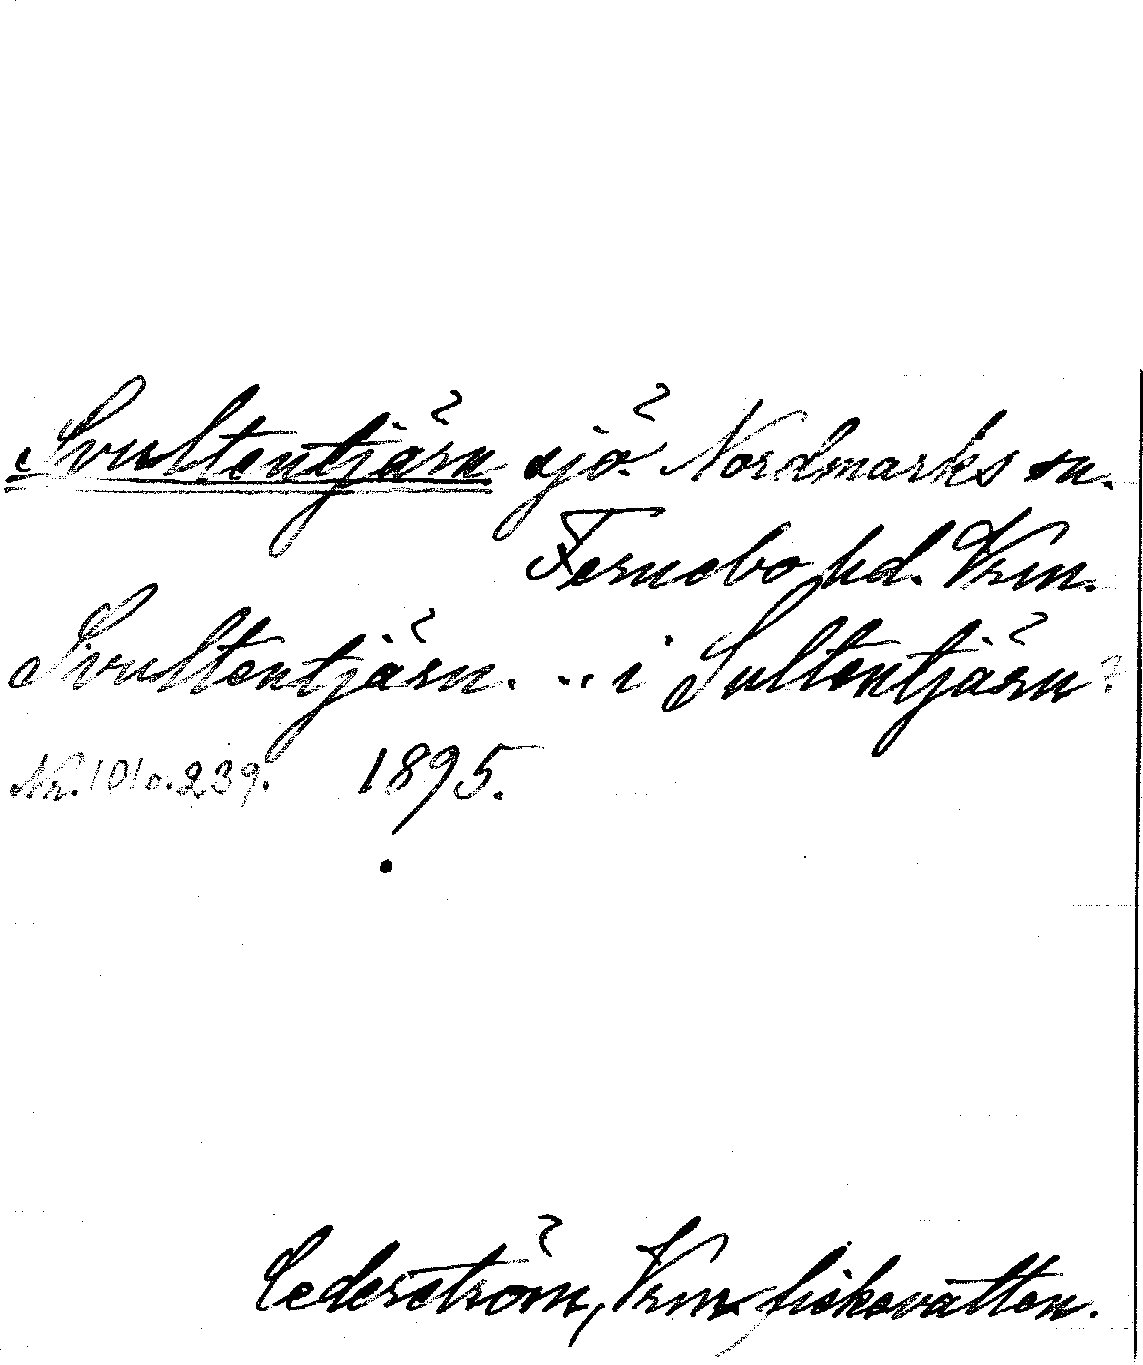 Svultentjärn sjö. Nordmarks sn.
Fernebo hd. Vrm.
Svultentjärn. .. i Sultentjärn?
Nr. 1010.239. 1895.
Cederström, Vrm fiskevatten.